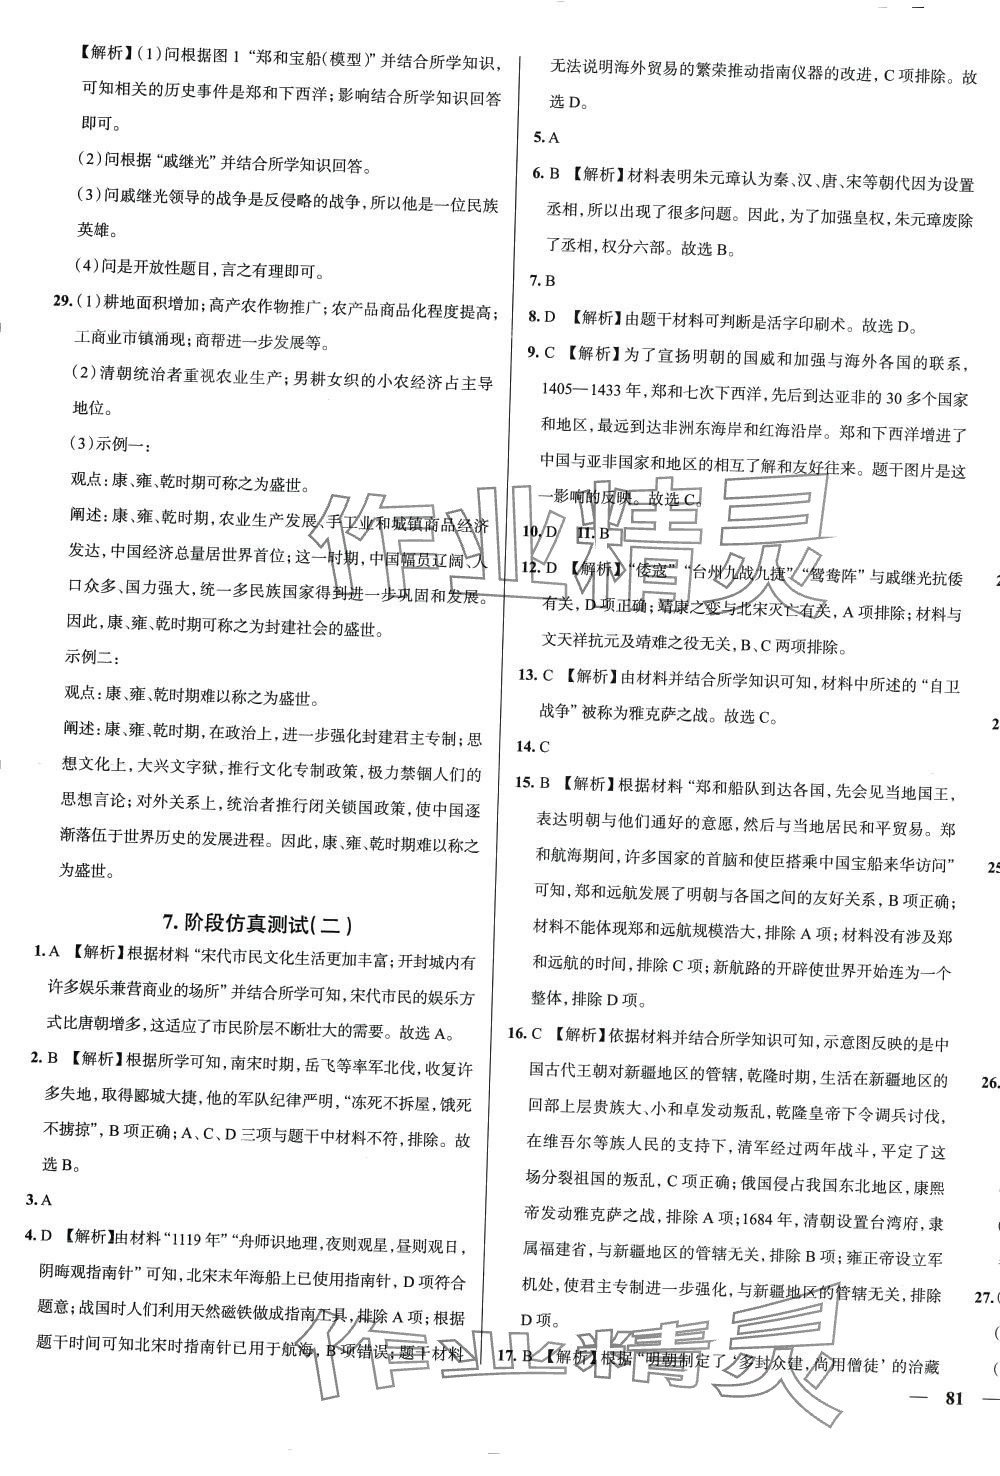 【解析】(1)问根据图1“郑和宝船(模型)”并结合所学知识,
可知相关的历史事件是郑和下西洋;影响结合所学知识回答
即可。
(2)问根据“戚继光”并结合所学知识回答。
(3)问戚继光领导的战争是反侵略的战争,所以他是一位民族
英雄。
(4)问是开放性题目,言之有理即可。
29.(1)耕地面积增加;高产农作物推广;农产品商品化程度提高;
工商业市镇涌现;商帮进一步发展等。
(2)清朝统治者重视农业生产;男耕女织的小农经济占主导
地位。
(3)示例一:
观点:康、雍、乾时期可称之为盛世。
阐述:康、雍、乾时期,农业生产发展、手工业和城镇商品经济
发达,中国经济总量居世界首位;这一时期,中国幅员辽阔、人
口众多、国力强大,统一多民族国家得到进一步巩固和发展。
因此,康、雍、乾时期可称之为封建社会的盛世。
示例二:
观点:康、雍、乾时期难以称之为盛世。
阐述:康、雍、乾时期,在政治上,进一步强化封建君主专制;思
想文化上,大兴文字狱,推行文化专制政策,极力禁锢人们的
思想言论;对外关系上,统治者推行闭关锁国政策,使中国逐
渐落伍于世界历史的发展进程。因此,康、雍、乾时期难以称之
为盛世。
7.阶段仿真测试(二)
1.A 【解析】根据材料“宋代市民文化生活更加丰富;开封城内有
许多娱乐兼营商业的场所”并结合所学可知,宋代市民的娱乐方
式比唐朝增多,这适应了市民阶层不断壮大的需要。故选A。
2.B 【解析】根据所学可知,南宋时期,岳飞等率军北伐,收复许
多失地,取得郾城大捷,他的军队纪律严明,“冻死不拆屋,饿死
不掳掠”,B项正确;A、C、D三项与题干中材料不符,排除。故
选B。
3.A
4.D 【解析】由材料“1119年”“舟师识地理,夜则观星,昼则观日,
阴晦观指南针”可知,北宋末年海船上已使用指南针,D项符合
题意;战国时人们利用天然磁铁做成指南工具,排除A项;根据
题干时间可知北宋时指南针已用于航海,B项错误;题干材料
无法说明海外贸易的繁荣推动指南仪器的改进,C项排除。故
选D。
5.A
6.B 【解析】材料表明朱元璋认为秦、汉、唐、宋等朝代因为设置
丞相,所以出现了很多问题。因此,为了加强皇权,朱元璋废除
了丞相,权分六部。故选B。
7.B
8.D 【解析】由题干材料可判断是活字印刷术。故选D。
9.C 【解析】为了宣扬明朝的国威和加强与海外各国的联系,
1405—1433年,郑和七次下西洋,先后到达亚非的30多个国家
和地区,最远到达非洲东海岸和红海沿岸。郑和下西洋增进了
中国与亚非国家和地区的相互了解和友好往来。题干图片是这
一影响的反映。故选C。
10.D 11.B
12.D 【解析】“倭寇”“台州九战九捷”“鸳鸯阵”与戚继光抗倭
有关,D项正确;靖康之变与北宋灭亡有关,A项排除;材料与
文天祥抗元及靖难之役无关,B、C两项排除。
13.C 【解析】由材料并结合所学知识可知,材料中所述的“自卫
战争”被称为雅克萨之战。故选C。
14.C
15.B 【解析】根据材料“郑和船队到达各国,先会见当地国王,
表达明朝与他们通好的意愿,然后与当地居民和平贸易。郑
和航海期间,许多国家的首脑和使臣搭乘中国宝船来华访问”
可知,郑和远航发展了明朝与各国之间的友好关系,B项正确;
材料不能体现郑和远航规模浩大,排除A项;材料没有涉及郑
和远航的时间,排除C项;新航路的开辟使世界开始连为一个
整体,排除D项。
16.C 【解析】依据材料并结合所学知识可知,示意图反映的是中
国古代王朝对新疆地区的管辖,乾隆时期,生活在新疆地区的
回部上层贵族大、小和卓发动叛乱,乾隆皇帝下令调兵讨伐,
在维吾尔等族人民的支持下,清军经过两年战斗,平定了这
场分裂祖国的叛乱,C项正确;俄国侵占我国东北地区,康熙
帝发动雅克萨之战,排除A项;1684年,清朝设置台湾府,隶
属福建省,与新疆地区的管辖无关,排除B项;雍正帝设立军
机处,使君主专制进一步强化,与新疆地区的管辖无关,排除
D项。
17.B 【解析】根据“明朝制定了‘多封众建,尚用僧徒’的治藏
— 81 —
2
2
25
26.
27.(
(
(
作业精灵
作业精灵